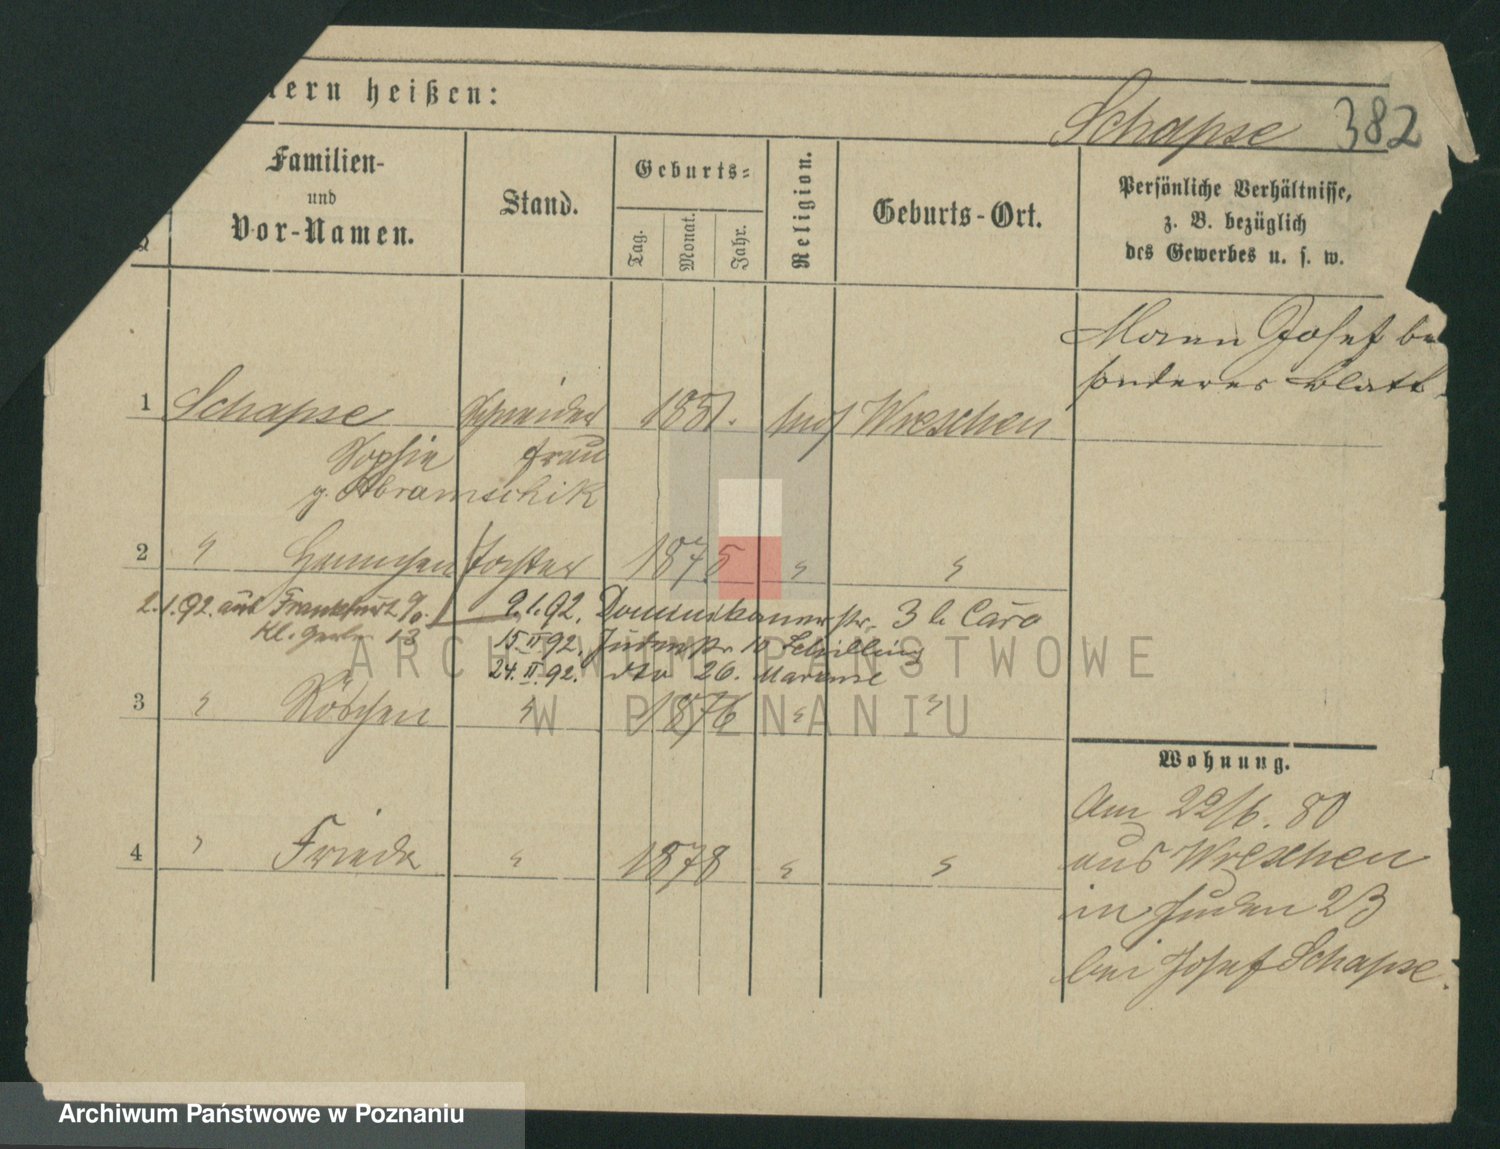 ern heißen:
Schapse 382
Familien-
und
Vor-Namen.
Stand.
Geburts-
Tag.
Monat.
Jahr.
Religion.
Geburts-Ort.
Persönliche Verhältnisse,
z. B. bezüglich
des Gewerbes u. s. w.
Mann Josef be
sonderes Blatt
1 Schapse Schneider 1851. mos Wreschen
Sophie frau
g. Abramschik
2 " Hannchen Tochter 1875 " "
2.1.92. aus Frankfurt 9/0. 9.1.92. Dominikanerstr. 3 b. Caro
Kl. 13 15.II 92. Judenstr 10 Schilling
24.II.92. dto 26.
3 " Röschen " 1876 " "
Wohnung.
Am 22/6. 80
aus Wreschen
in Juden 23
bei Josef Schapse.
4 " Frieda " 1878 " "
ARCHIWUM PAŃSTWOWE
W POZNANIU
Archiwum Państwowe w Poznaniu